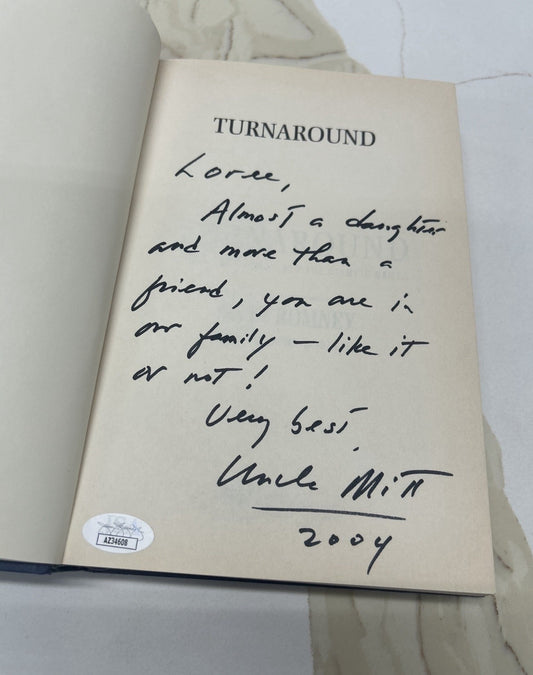 TURNAROUND
Loree,
Almost a daughter
and more than a
friend, you are in
our family – like it
or not!
Very best,
Uncle Mitt
2004
JSA
AZ34608